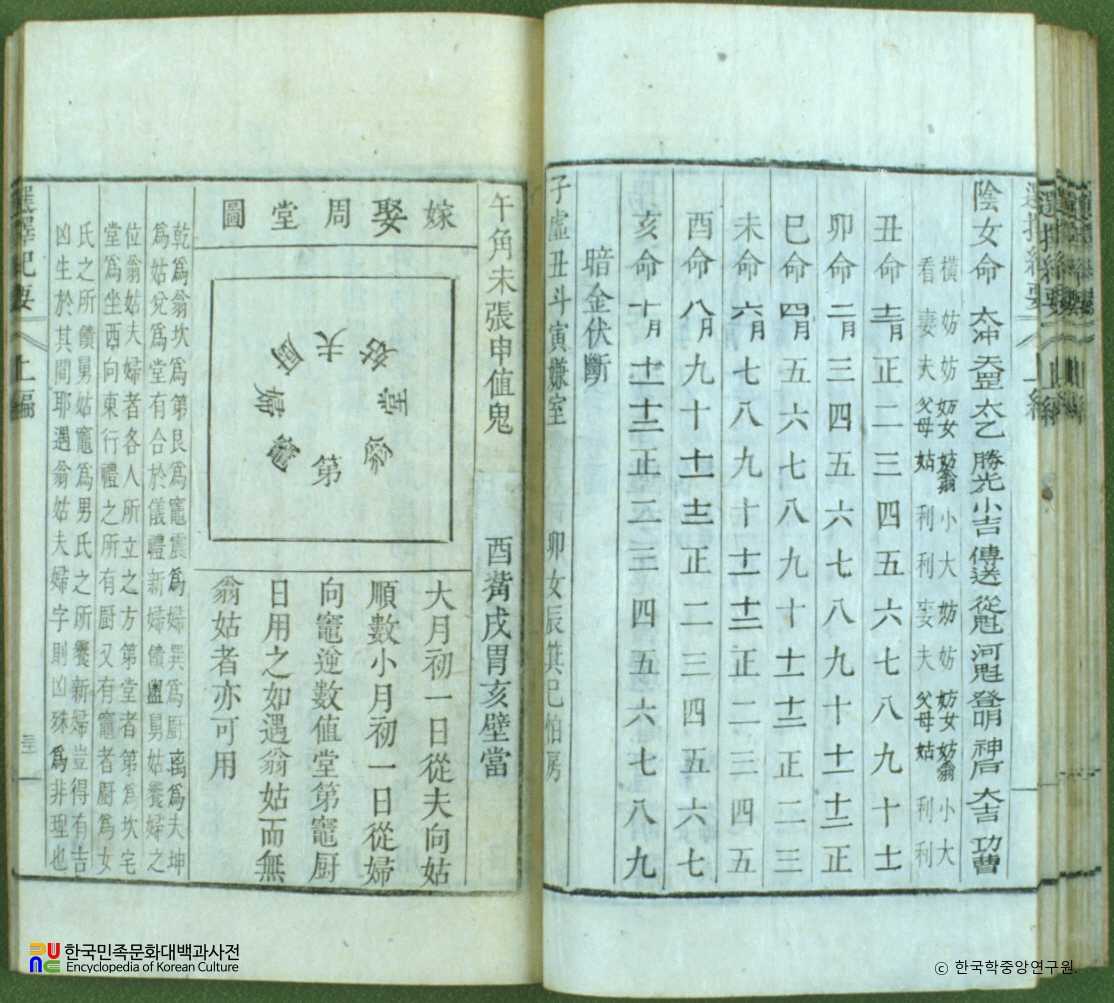 陰女命 太冲 天罡 太乙 勝光 小吉 傳送 從魁 河魁 登明 神后 大吉 功曹
橫看 妨妻 妨夫 妨女父母 妨翁姑 小利 大利 妨妻 妨夫 妨女父母 妨翁姑 小利 大利
丑命 十二月 正 二 三 四 五 六 七 八 九 十 十一
卯命 二月 三 四 五 六 七 八 九 十 十一 十二 正
巳命 四月 五 六 七 八 九 十 十一 十二 正 二 三
未命 六月 七 八 九 十 十一 十二 正 二 三 四 五
酉命 八月 九 十 十一 十二 正 二 三 四 五 六 七
亥命 十月 十一 十二 正 二 三 四 五 六 七 八 九
暗金伏斷
子虛丑斗寅嫌室 卯女辰箕巳怕房
午角未張申值鬼 酉觜戌胃亥壁當
嫁娶周堂圖
夫姑堂翁第竈婦厨
大月初一日從夫向姑
順數小月初一日從婦
向竈逆數值堂第竈厨
日用之如遇翁姑而無
翁姑者亦可用
乾爲翁坎爲第艮爲竈震爲婦巽爲厨离爲夫坤
爲姑兌爲堂有合於儀禮新婦饋盥舅姑饗婦之
位翁姑夫婦者各人所立之方第堂者第爲坎宅
堂爲坐西向東行禮之所有厨又有竈者厨爲女
氏之所饋舅姑竈爲男氏之所饗新婦豈得有吉
凶生於其間耶遇翁姑夫婦字則凶殊爲非理也
選擇紀要 上編
한국민족문화대백과사전
Encyclopedia of Korean Culture
© 한국학중앙연구원.